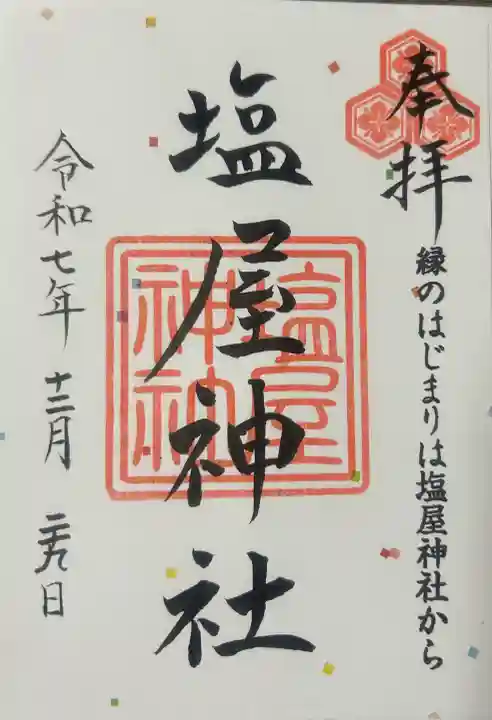 奉拝
縁のはじまりは塩屋神社から
塩屋神社
塩屋神社
令和七年 十二月 二十九日